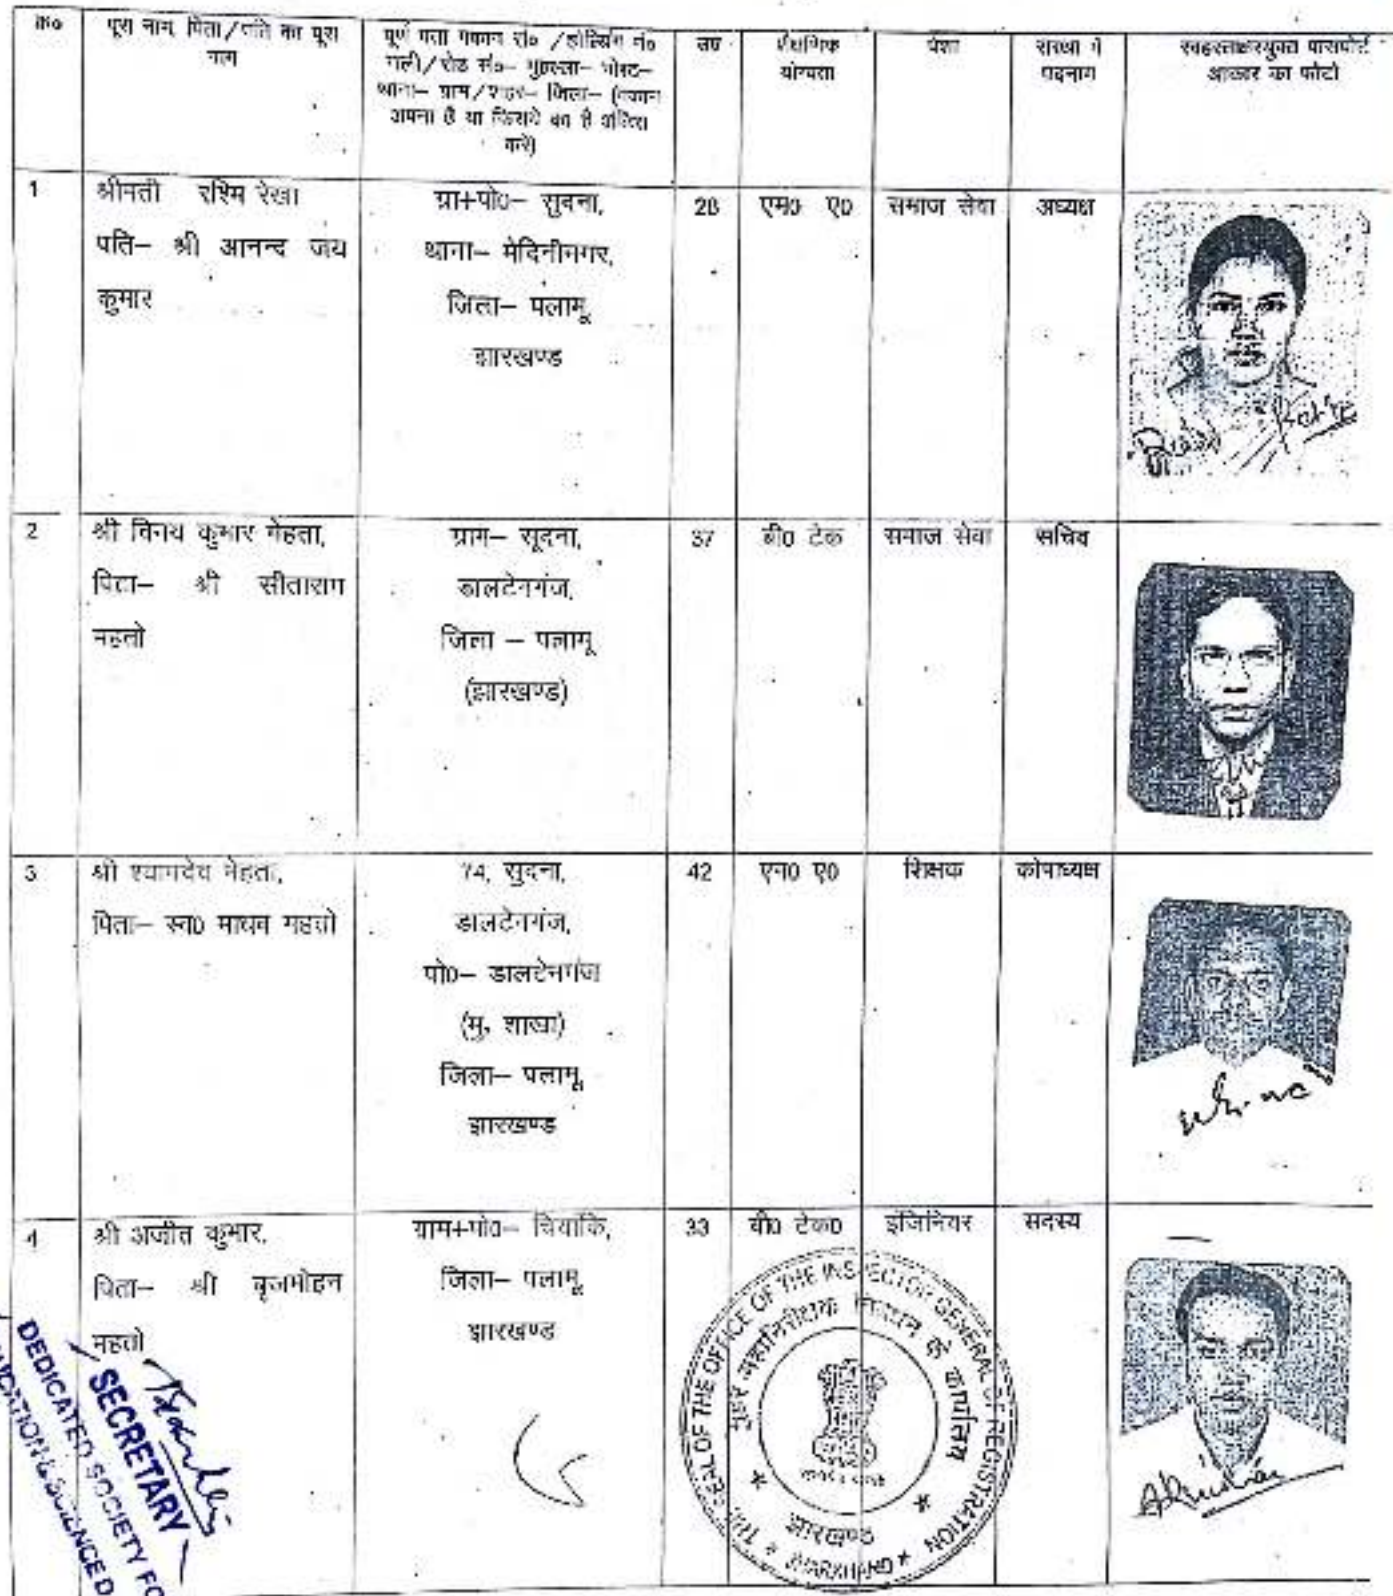 क्र०
पूरा नाम, पिता/पति का पूरा
नाम
पूर्ण पता मकान सं० /होल्डिंग नं०
गली/रोड सं०– मुहल्ला– पोस्ट–
थाना– ग्राम/शहर– जिला– (मकान
अपना है या किराये का है अंकित
करें)
उम्र
शैक्षणिक
योग्यता
पेशा
संस्था में
पदनाम
स्वहस्ताक्षरयुक्त पासपोर्ट
आकार का फोटो
1
श्रीमती रश्मि रेखा
पति– श्री आनन्द जय
कुमार
ग्रा+पो0– सुदना,
थाना– मेदिनीनगर,
जिला– पलामू
झारखण्ड
28
एम0 ए0
समाज सेवा
अध्यक्ष
2
श्री विनय कुमार मेहता,
पिता– श्री सीताराम
महतो
ग्राम– सूदना,
डालटेनगंज,
जिला – पलामू
(झारखण्ड)
37
बी0 टेक
समाज सेवा
सचिव
3
श्री श्यामदेव मेहता,
पिता– स्व0 माधव महतो
74, सुदना,
डालटेनगंज,
पो0– डालटेनगंज
(मु. शाखा)
जिला– पलामू,
झारखण्ड
42
एम0 ए0
शिक्षक
कोषाध्यक्ष
4
श्री अजीत कुमार,
पिता– श्री बृजमोहन
महतो
ग्राम+पो0– चियांकि,
जिला– पलामू
झारखण्ड
33
बी0 टेक0
इंजिनियर
सदस्य
SECRETARY
DEDICATED SOCIETY FO
THE SEAL OF THE OFFICE OF THE INSPECTOR GENERAL OF REGISTRATION
महानिरीक्षक निबंधन के कार्यालय
झारखण्ड
JHARKHAND